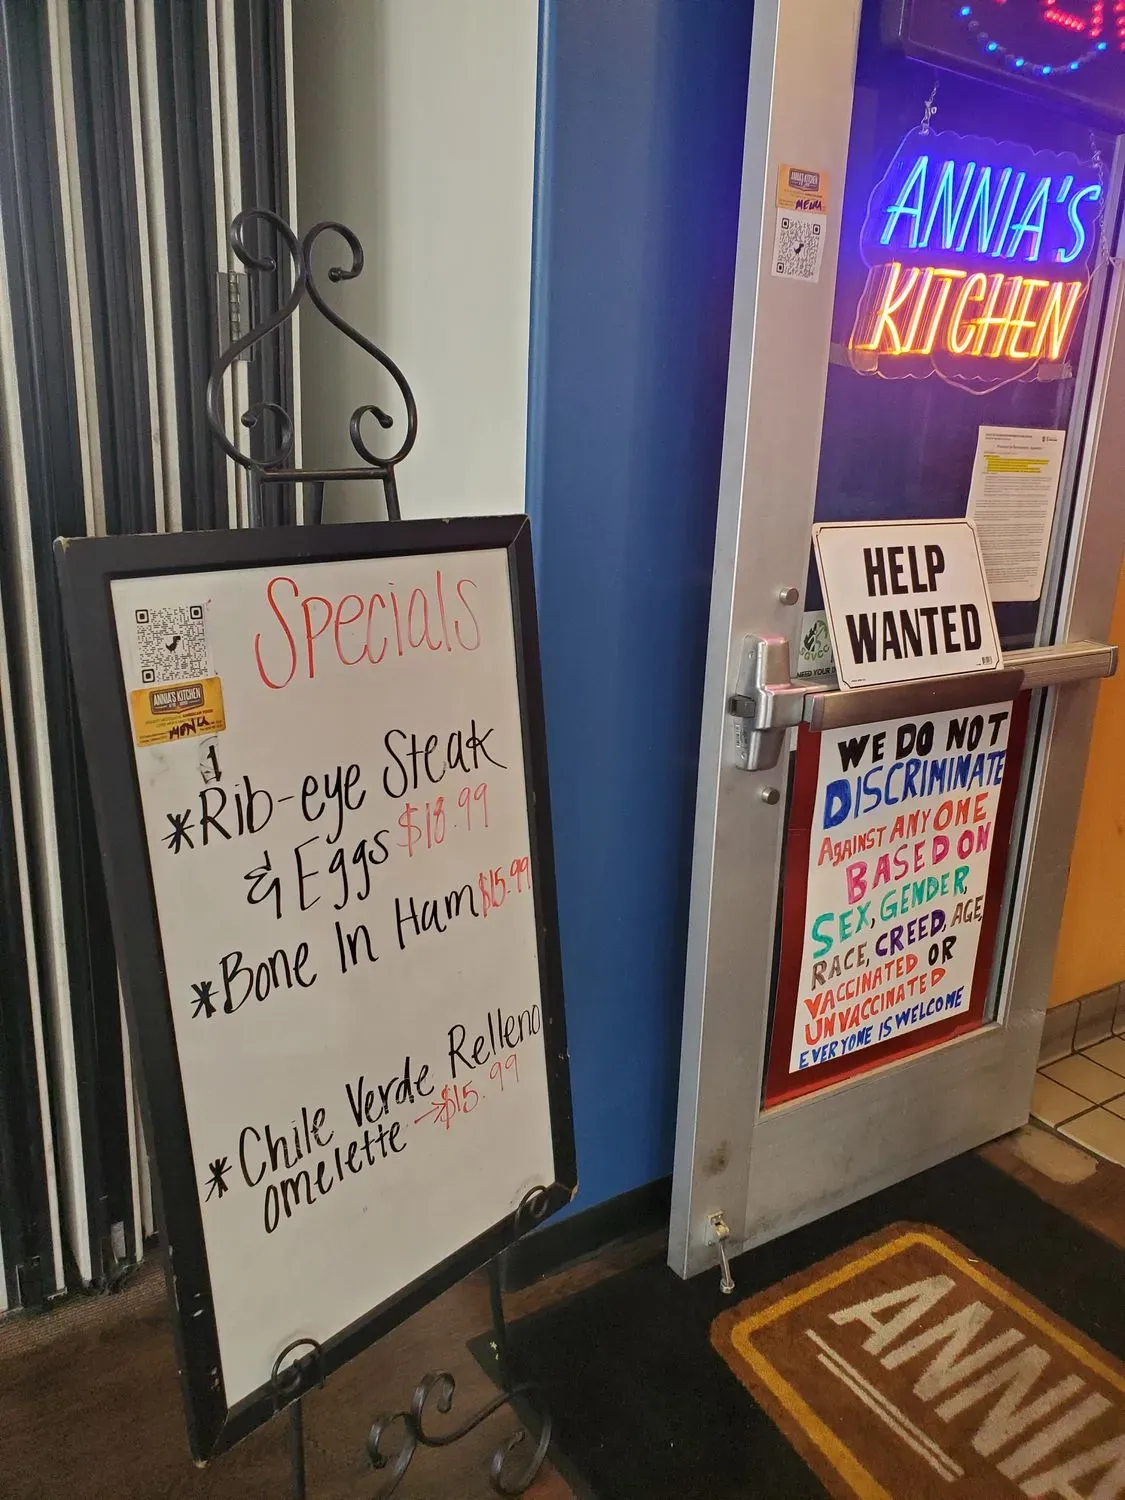 Specials
ANNIA'S KITCHEN
MENU
1
*Rib-eye Steak
& Eggs $18.99
*Bone In Ham $15.99
*Chile Verde Relleno
omelette →$15.99
ANNIA'S KITCHEN
MENU
ANNIA'S
KITCHEN
HELP
WANTED
WE DO NOT
DISCRIMINATE
AGAINST ANYONE
BASED ON
SEX, GENDER,
RACE, CREED, AGE,
VACCINATED OR
UNVACCINATED
EVERYONE IS WELCOME
ANNIA